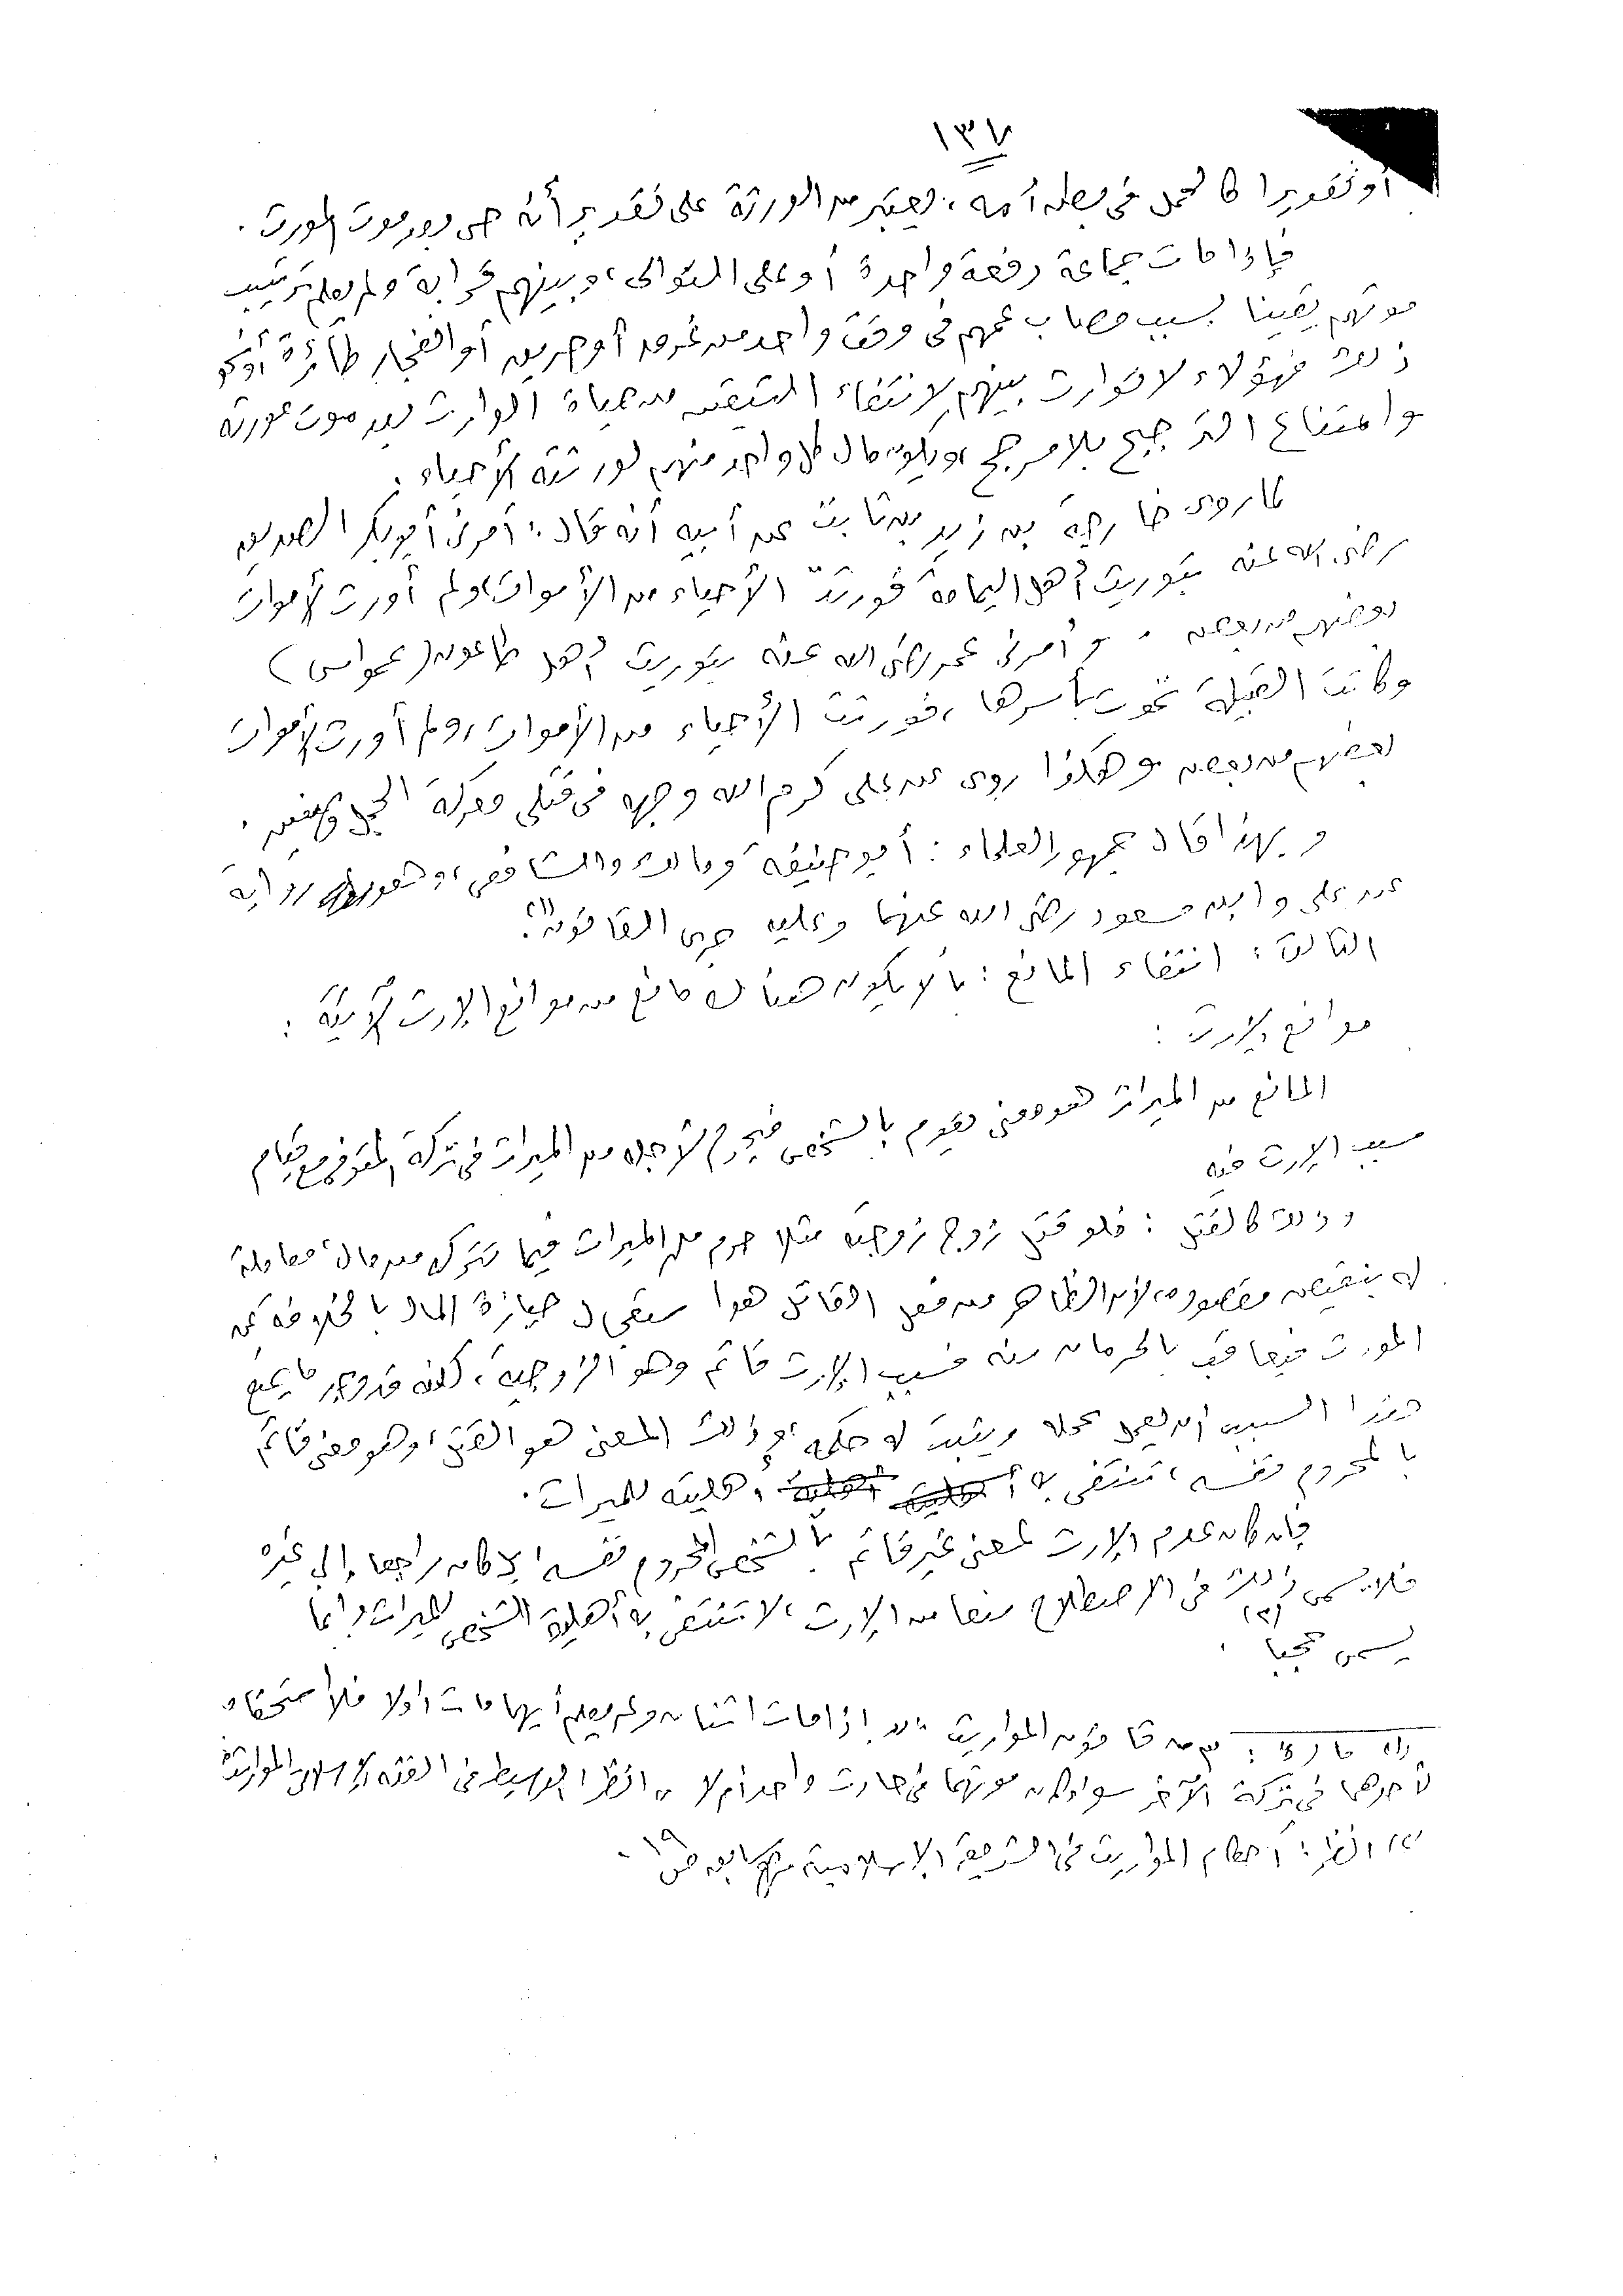 ١٣٧
أو تقديرا كالحمل فى بطن أمه ، يعتبر من الورثة على تقدير أنه حى بعد موت المورث .
فإذا مات جماعة دفعة واحدة أو على التوالى ، وبينهم قرابة ولم يعلم ترتيب
موتهم يقينا بسبب مصاب عمهم فى وقت واحد من غرق أو حريق أو انفجار طائرة أو نحو
ذلك فهؤلاء لا توارث بينهم لانتفاء التيقن من حياة الوارث بعد موت مورثه
وامتناع الترجيح بلا مرجح ، ويكون مال كل واحد منهم لورثته الأحياء .
لما روى خارجة بن زيد بن ثابت عن أبيه أنه قال : أمرنى أبو بكر الصديق
رضى الله عنه بتوريث أهل اليمامة فورثت الأحياء من الأموات ولم أورث الأموات
بعضهم من بعض . وأمرنى عمر رضى الله عنه بتوريث أهل طاعون (عمواس)
وكانت القبيلة تموت بأسرها ، فورثت الأحياء من الأموات ، ولم أورث الأموات
بعضهم من بعض وهكذا روى عن على كرم الله وجهه فى قتلى معركة الجمل وصفين .
وبهذا قال جمهور العلماء : أبو حنيفة ومالك والشافعى ، وهو رواية
عن على وابن مسعود رضى الله عنهما وعليه جرى القانون (١) .
الثالث : انتفاء المانع : بألا يكون هناك مانع من موانع الإرث الآتية :
موانع الإرث :
المانع من الميراث هو معنى يقوم بالشخص فيحرم لأجله من الميراث فى تركة المتوفى مع قيام
سبب الإرث فيه
وذلك كالقتل : فلو قتل زوج زوجته مثلا حرم من الميراث فيما تترك من مال ، معاملة
له بنقيض مقصوده لأن الظاهر من فعل القاتل هو استعجال حيازة المال بالخلافة عن
المورث فيعاقب بالحرمان منه فسبب الإرث قائم وهو الزوجية ، لكنه قد وجد ما يمنع
هذا السبب أن يعمل عمله ويثبت له حكمه ، وذلك المعنى هو القتل ، وهو معنى قائم
بالمحروم نفسه ، تنتفى به أهليته للميراث .
فإن كان عدم الإرث لمعنى غير قائم بالشخص المحروم نفسه بل كان راجعا إلى غيره
فلا يسمى ذلك فى الاصطلاح منعا من الإرث ، لا تنتفى به أهلية الشخص للميراث وإنما
يسمى حجبا (٢) .
(١) مادة : ٣ من قانون المواريث " إذا مات اثنان ولم يعلم أيهما مات أولا فلا استحقاق
لأحدهما فى تركة الآخر سواء كان موتهما فى حادث واحد أم لا " انظر الوسيط فى الفقه الإسلامى المواريث
(٢) انظر : أحكام المواريث فى الشريعة الإسلامية